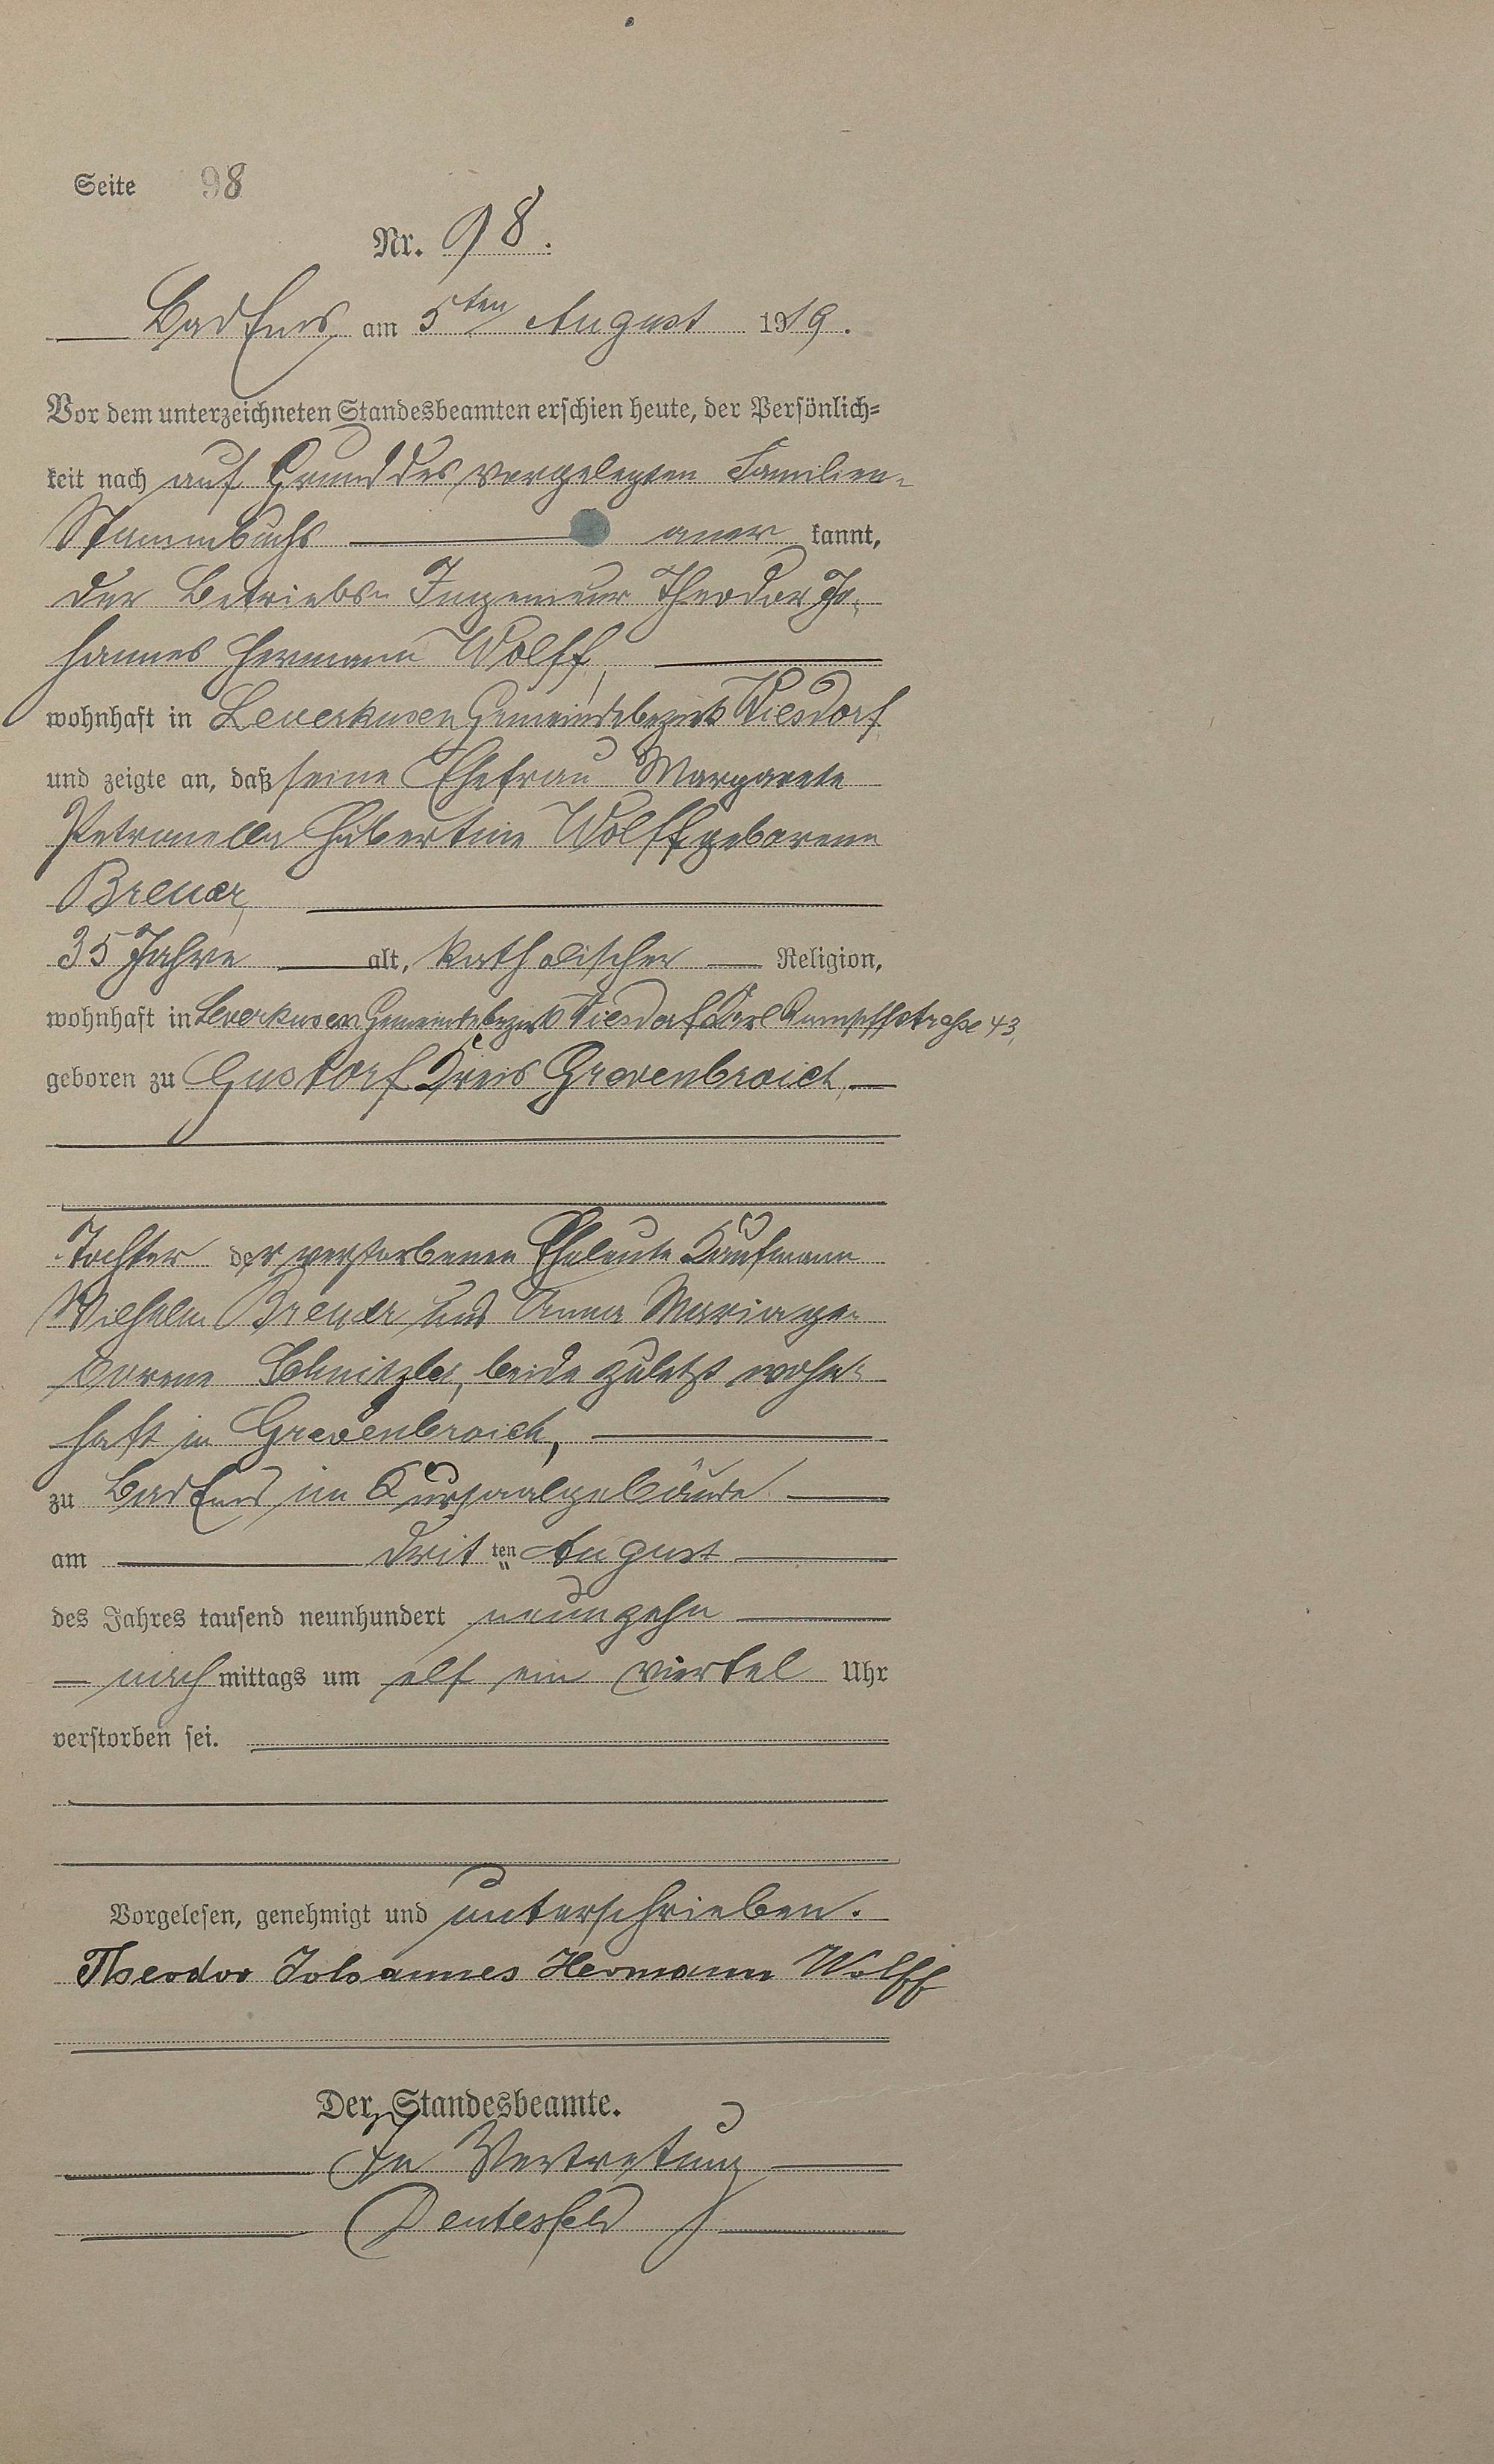 Seite 98
Nr. 98.
Bad Ems, am 5ten August 1919.
Vor dem unterzeichneten Standesbeamten erschien heute, der Persönlich=
keit nach auf Grund des vorgelegten Familien-
Stammbuchs aner kannt,
der Betriebs-Ingenieur Theodor Jo-
hannes Hermann Wolff,
wohnhaft in Leverkusen Gemeindebezirk Wiesdorf
und zeigte an, daß seine Ehefrau Margarete
Petronella Hubertine Wolff geborene
Breuer,
35 Jahre alt, katholischer Religion,
wohnhaft in Leverkusen Gemeindebezirk Wiesdorf Carl Rumpffstraße 43,
geboren zu Gustorf Kreis Grevenbroich,
Tochter der verstorbenen Eheleute Kaufmann
Wilhelm Breuer und Anna Maria ge-
borene Schnitzler, beide zuletzt wohn-
haft in Grevenbroich,
zu Bad Ems im Kursaalgebäude
am drit ten August
des Jahres tausend neunhundert neunzehn
nach mittags um elf ein viertel Uhr
verstorben sei.
Vorgelesen, genehmigt und unterschrieben.
Theodor Johannes Hermann Wolff
Der Standesbeamte.
In Vertretung